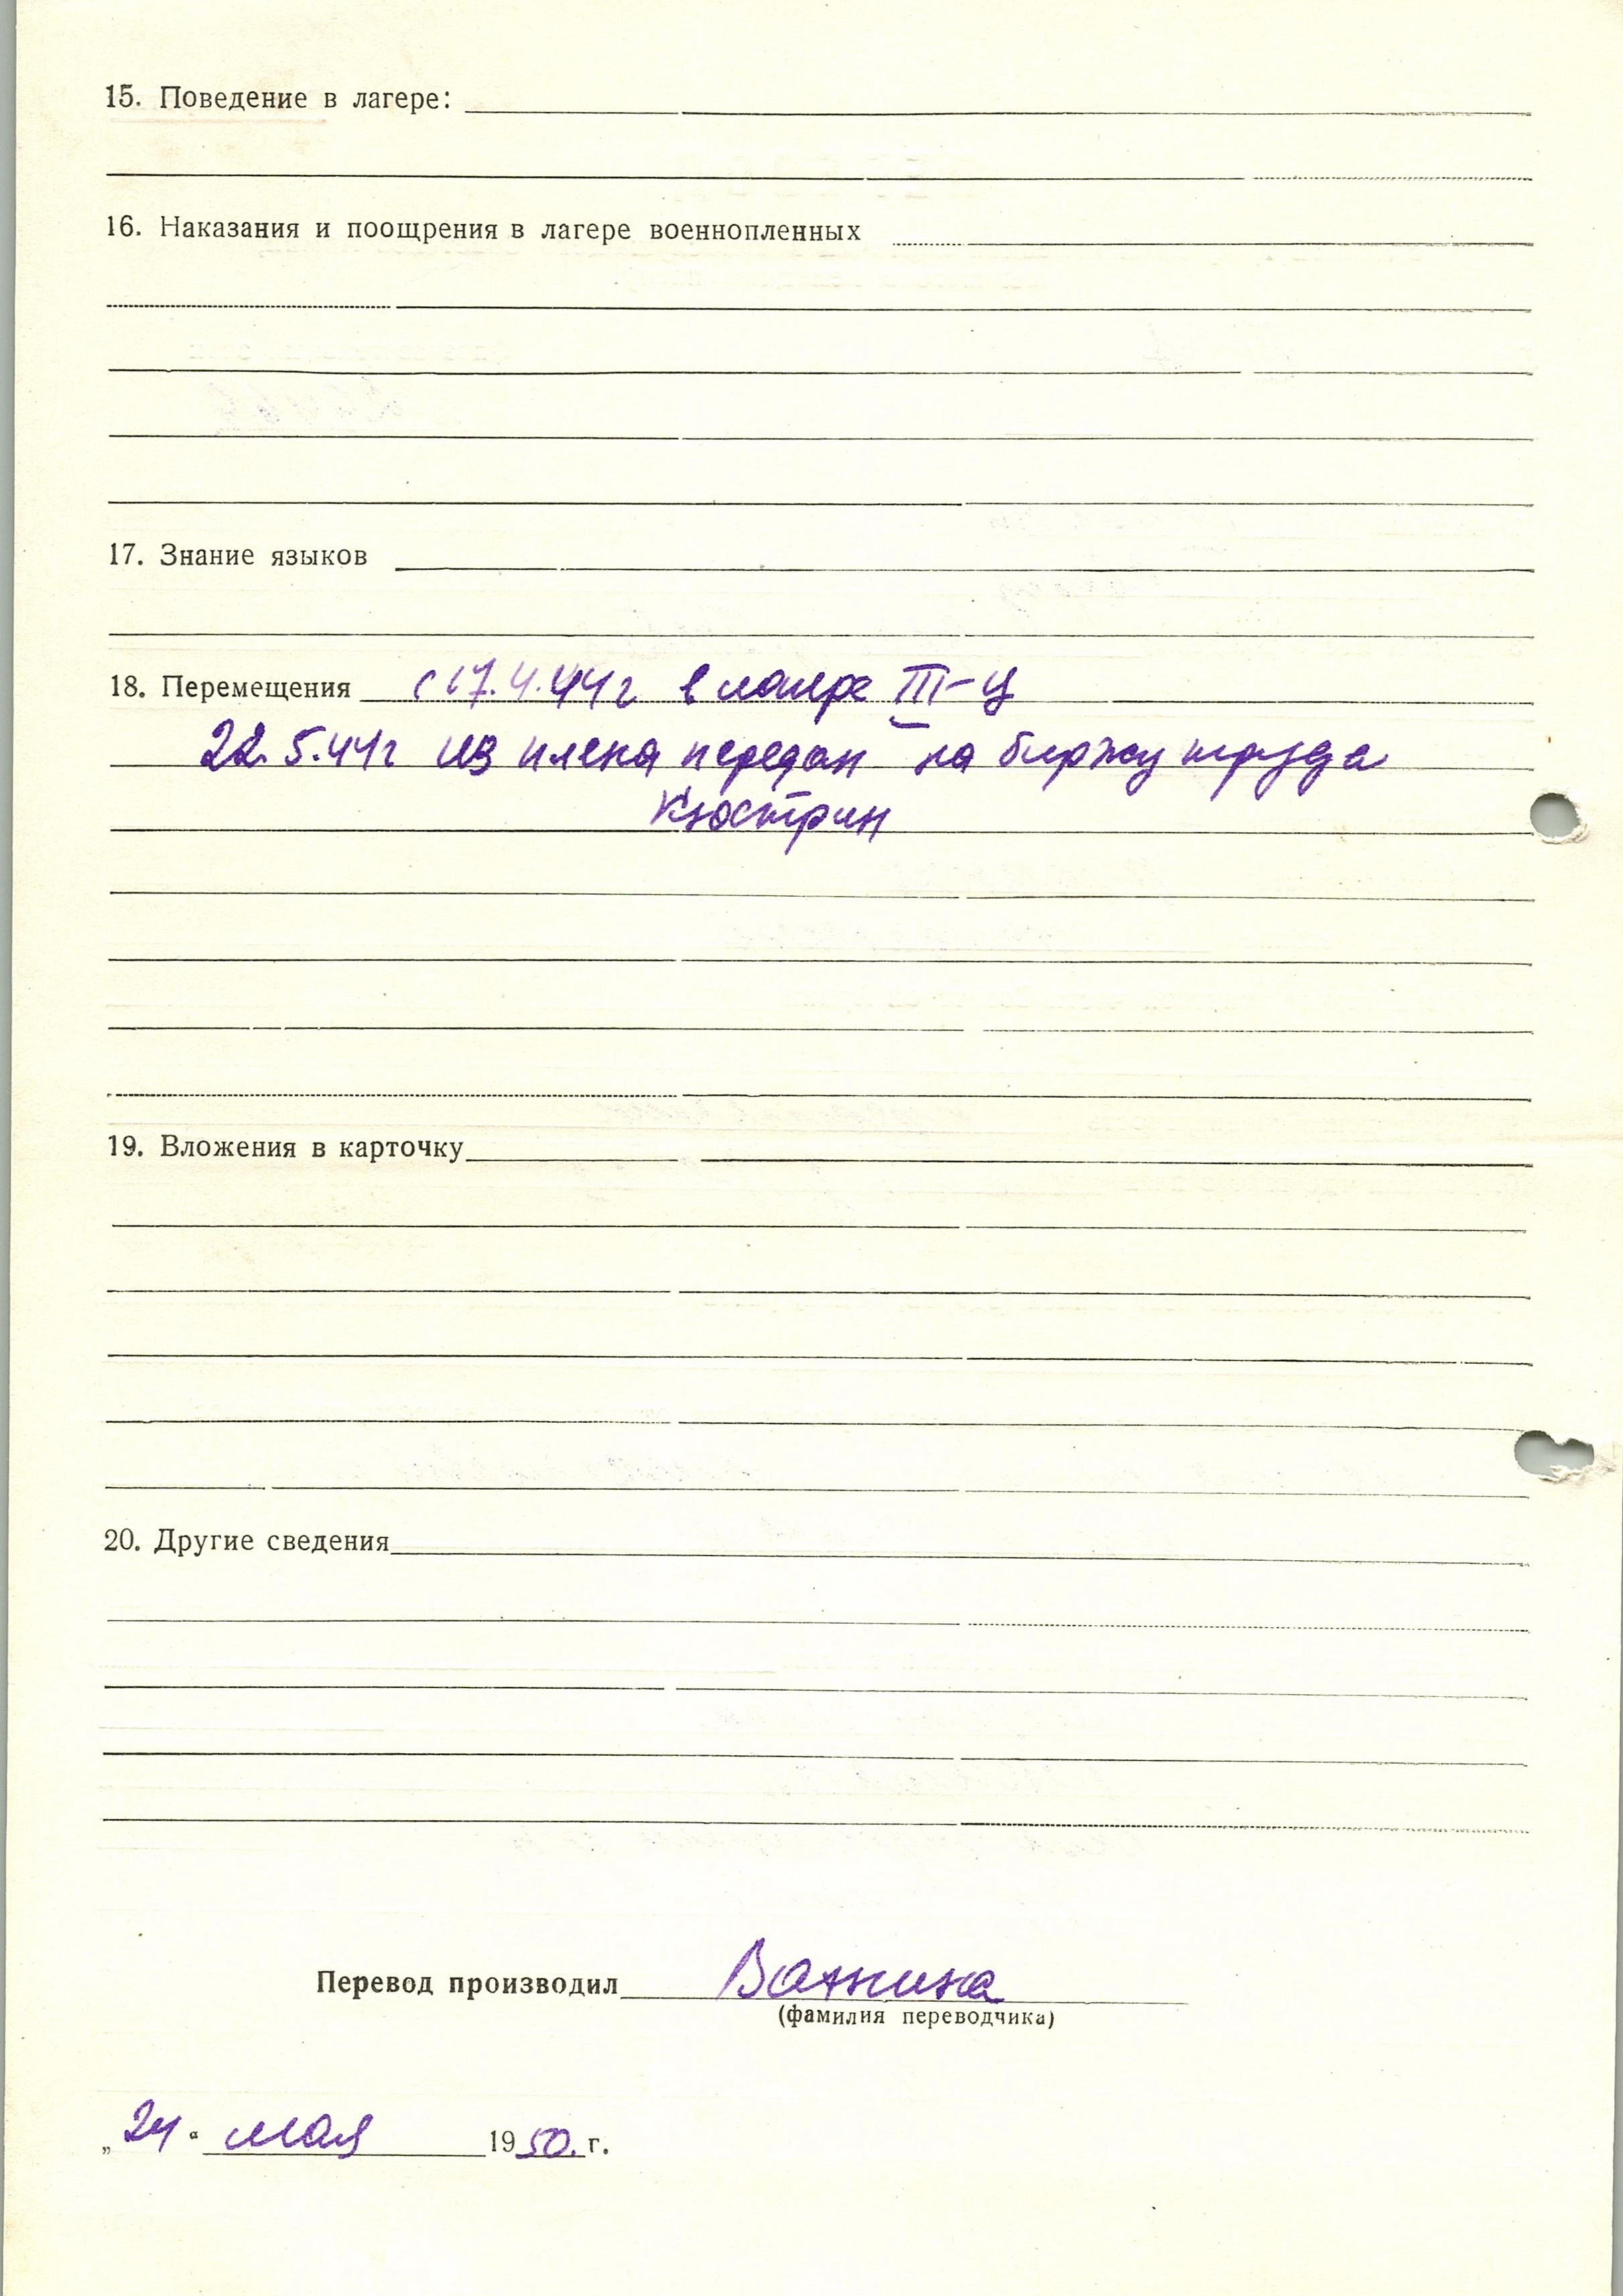 15. Поведение в лагере:
16. Наказания и поощрения в лагере военнопленных
17. Знание языков
18. Перемещения с 17.4.44г в лагере III-Ц
22.5.44г из плена передан на биржу труда
Кюстрин
19. Вложения в карточку
20. Другие сведения
Перевод производил
(фамилия переводчика)
„24“ мая 1950.г.